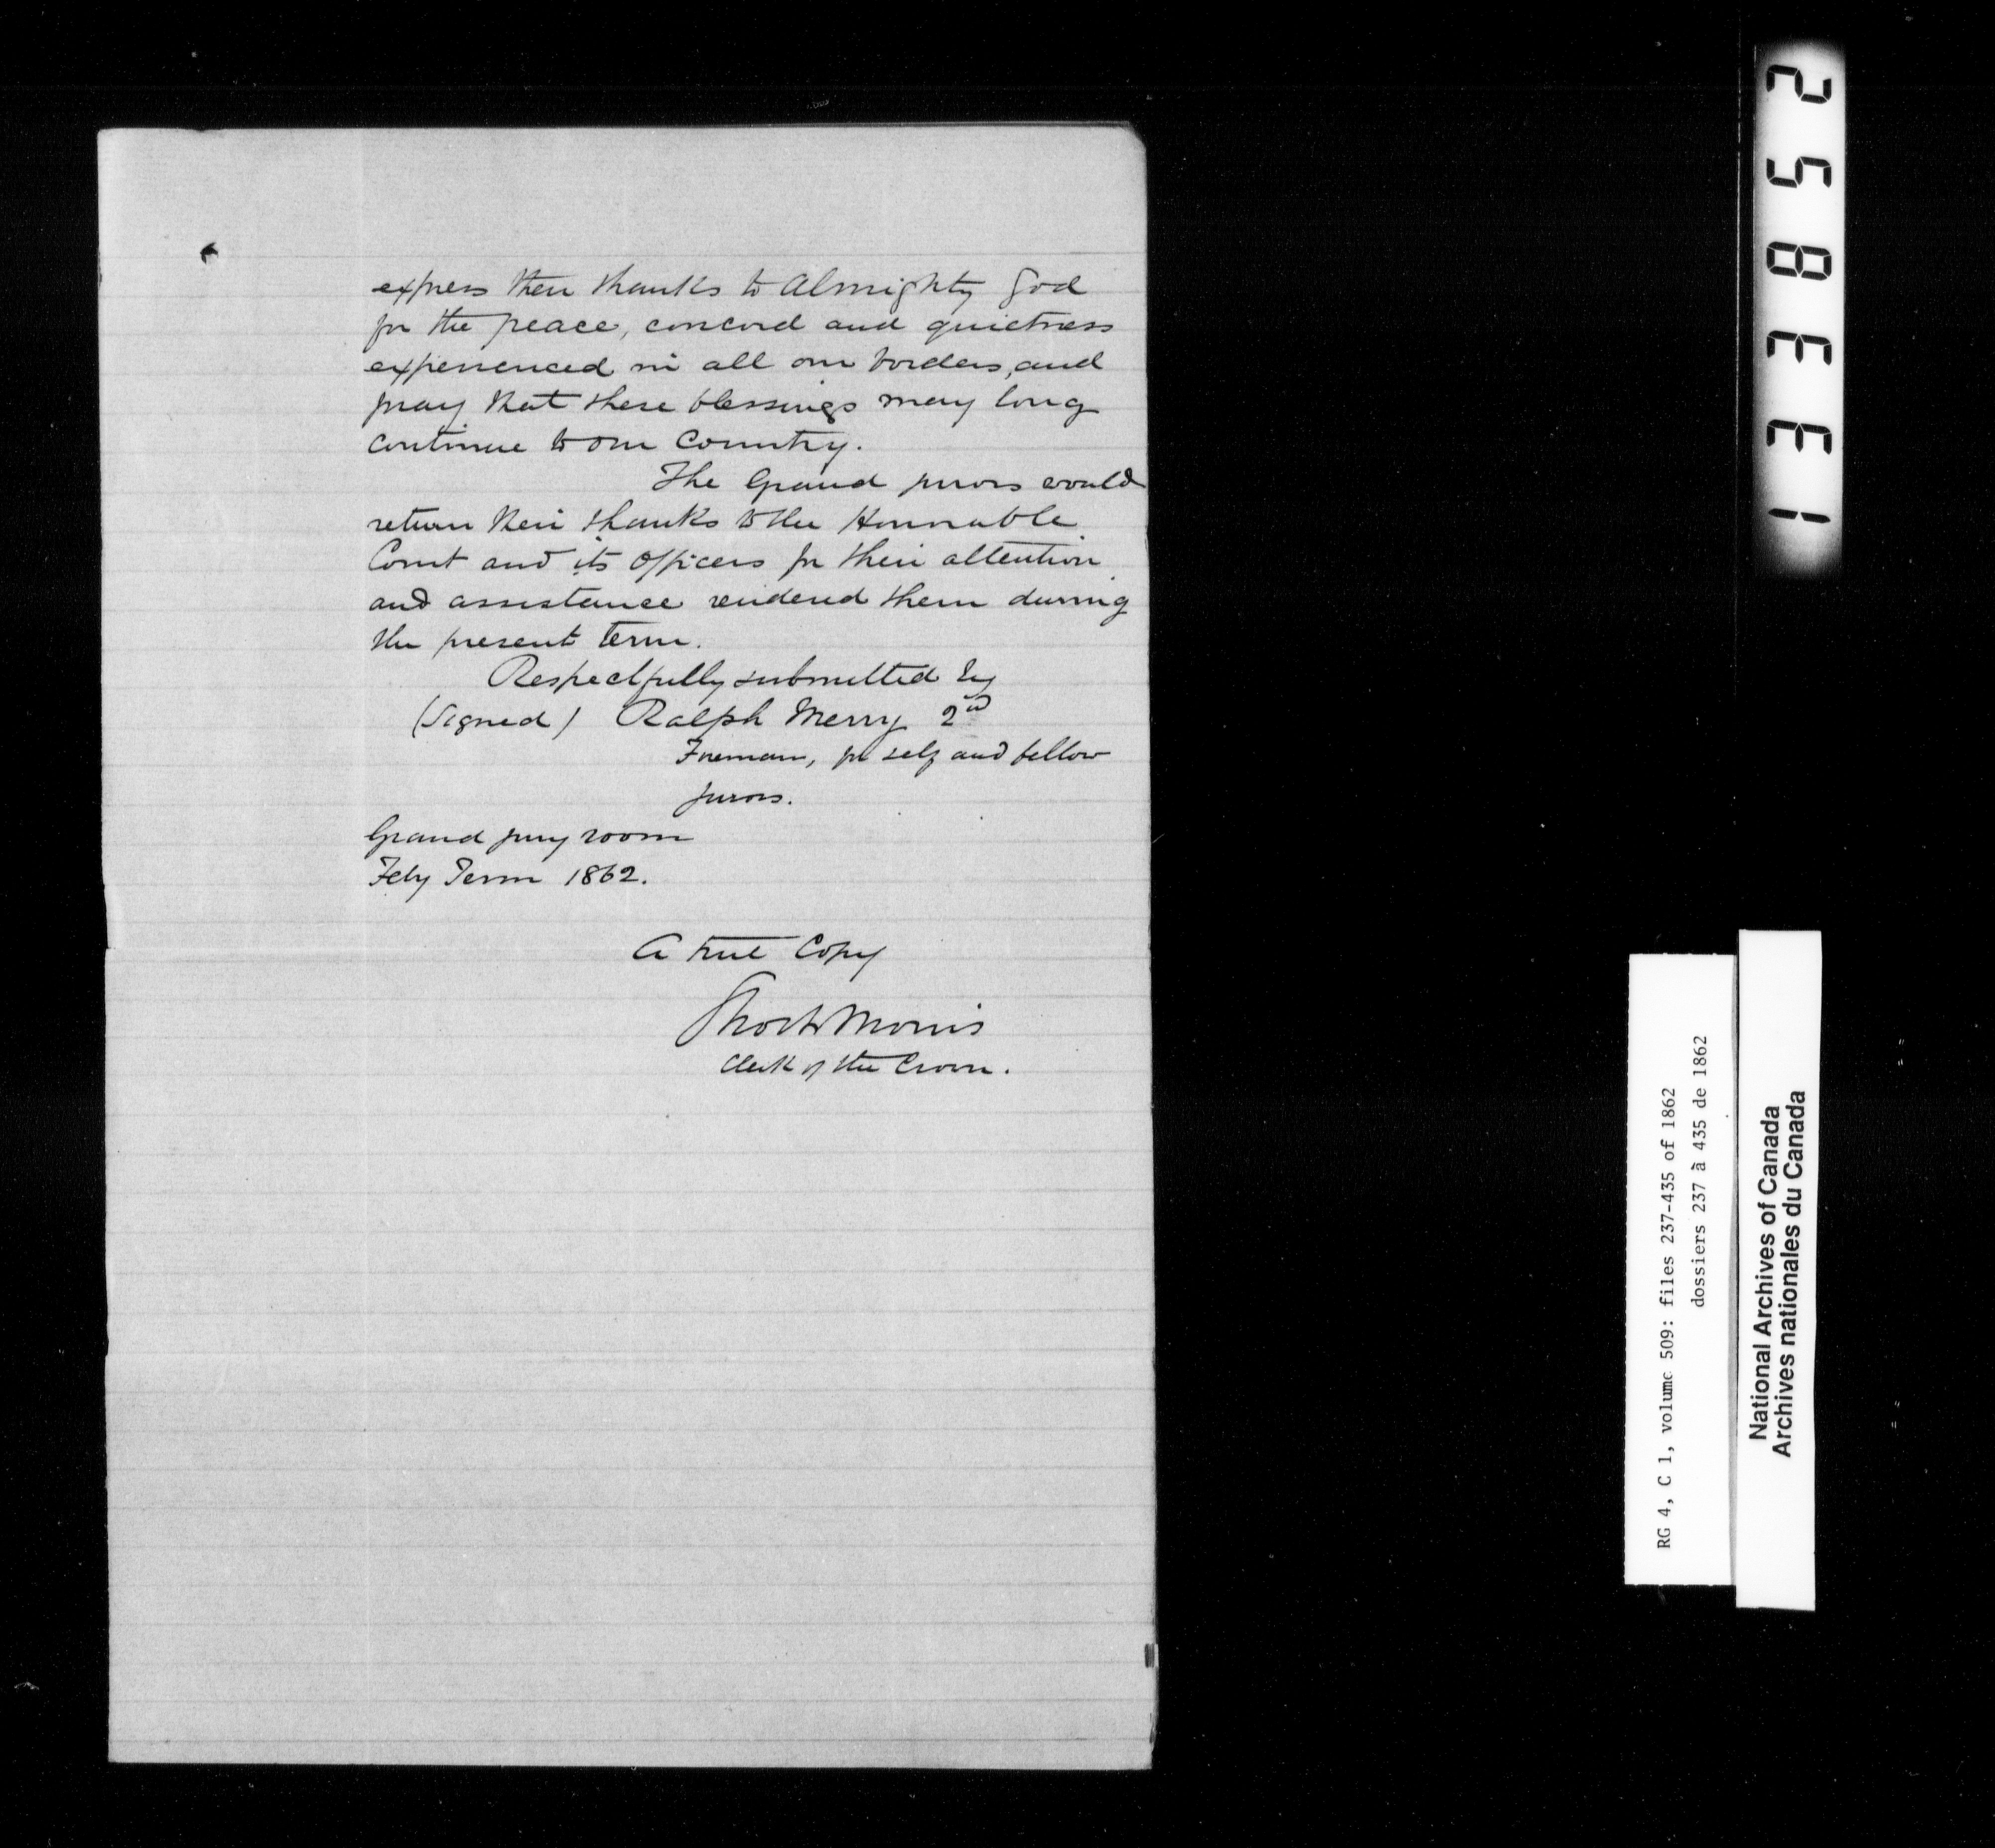 express their thanks to Almighty God
for the peace, concord and quietness
experienced in all our borders, and
pray that these blessings may long
continue to our Country.
The Grand jurors would
return their thanks to the Honorable
Court and its officers for their attention
and assistance rendered them during
the present term.
Respectfully submitted by
(Signed) Ralph Merry 2nd
Foreman, for self and fellow
jurors.
Grand jury room
Feby Term 1862.
A true Copy
Short & Morris
Clerk of the Crown.
25833 1
RG 4, C 1, volume 509: files 237-435 of 1862
dossiers 237 à 435 de 1862
National Archives of Canada
Archives nationales du Canada